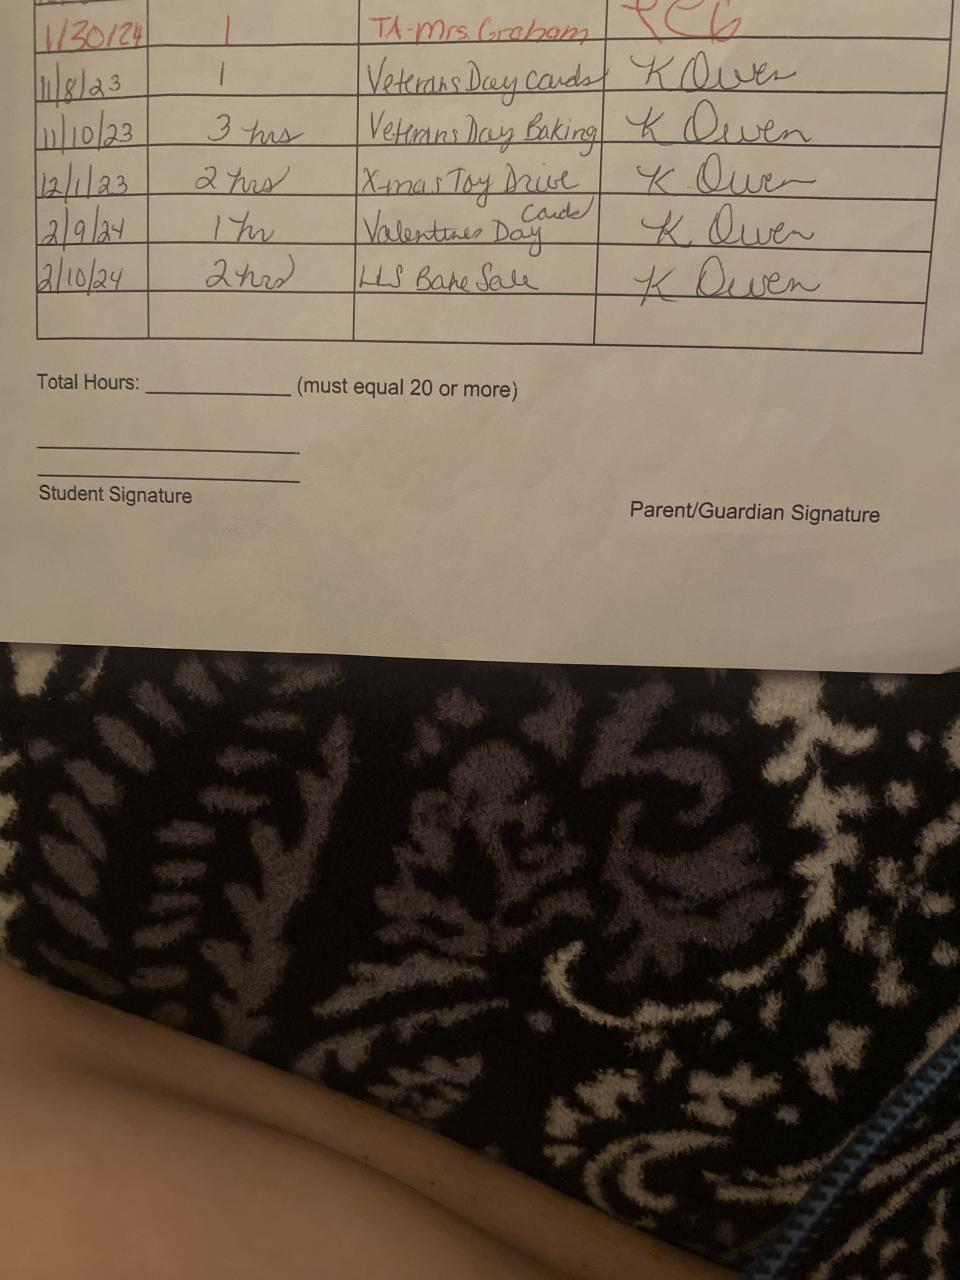 1/30/24 1 TA-Mrs. Graham
11/8/23 1 Veterans Day Cards K Owen
11/10/23 3 hrs Veterans Day Baking K Owen
12/1/23 2 hrs X-mas Toy Drive K Owen
2/9/24 1 hr Valentines Day Cards K Owen
2/10/24 2 hrs Bake Sale K Owen
Total Hours: (must equal 20 or more)
Student Signature
Parent/Guardian Signature